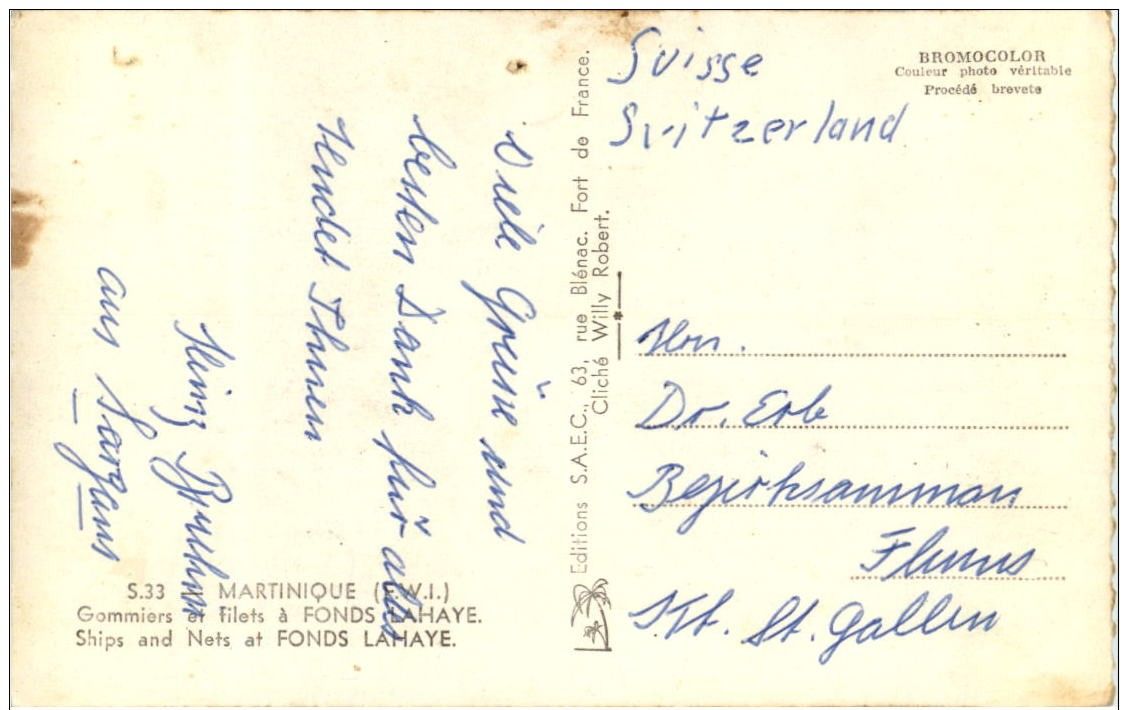 Viele Grüsse und
besten Dank für alles
sendet Ihnen
Heinz
aus Sargans
S.33 MARTINIQUE (F.W.I.)
Gommiers et filets à FONDS LAHAYE.
Ships and Nets at FONDS LAHAYE.
Editions S.A.E.C., 63, rue Blénac. Fort de France.
Cliché Willy Robert.
BROMOCOLOR
Couleur photo véritable
Procédé brevete
Suisse
Switzerland
Hrn.
Dr. Erb
Bezirksamman
Flums
Kt. St. Gallen